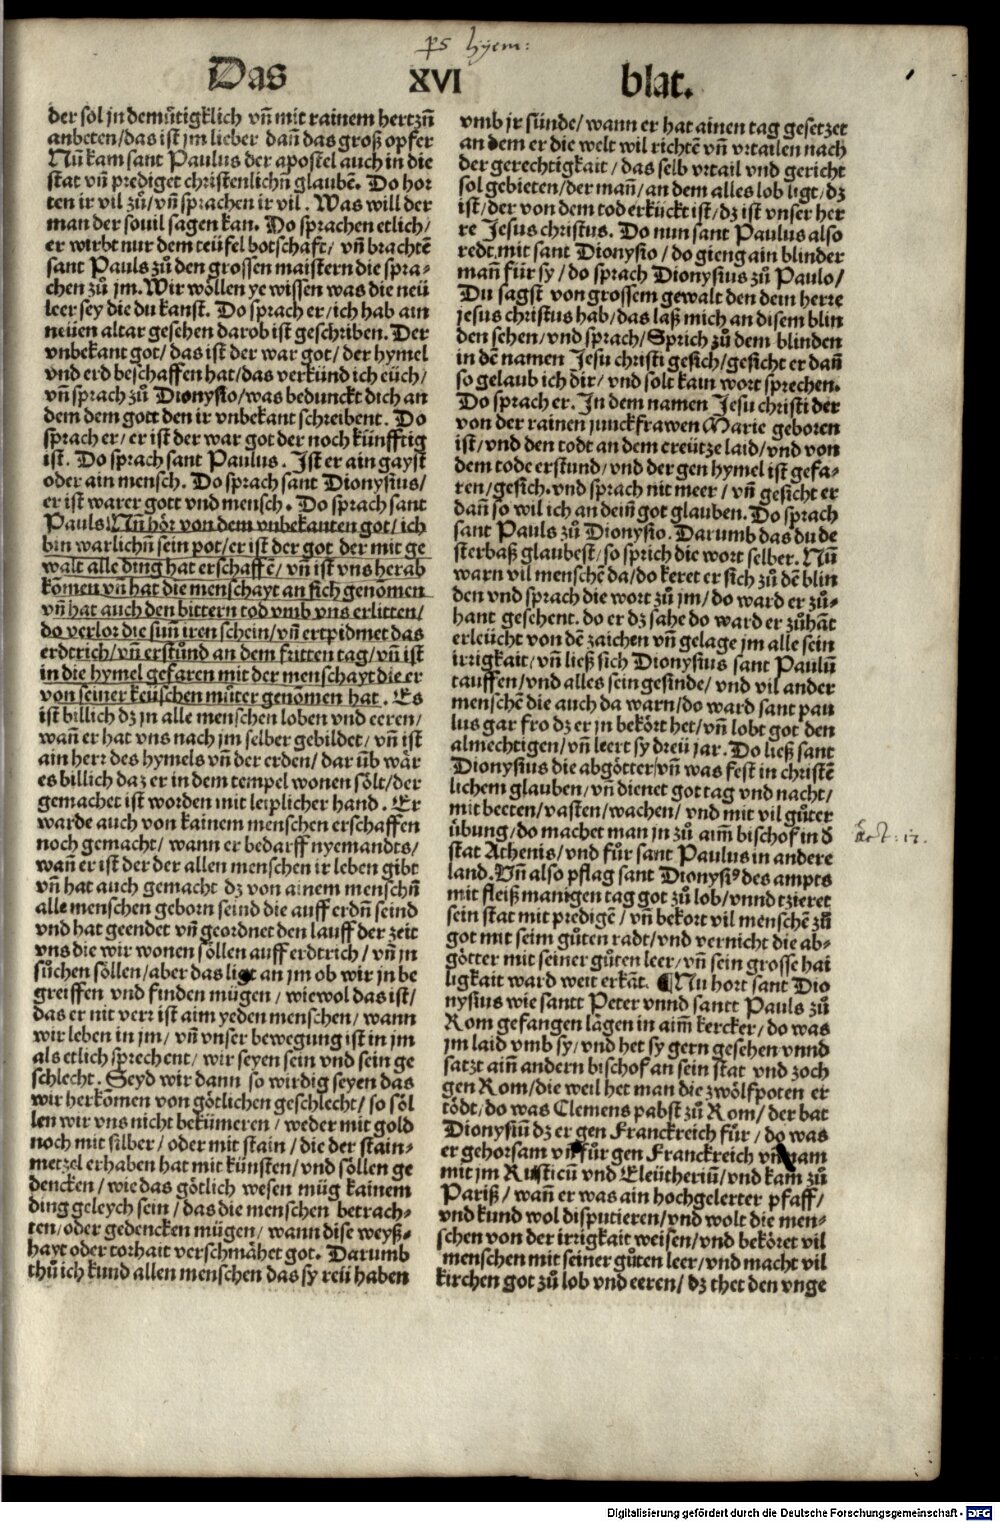 ps hyem:
Das XVI blat.
der sol jn demůtigklich vñ mit rainem hertzñ
anbeten/das ist jm lieber dañ das groß opfer
Nũ kam sant Paulus der apostel auch in die
stat vñ prediget christenlichñ glaubẽ. Do hor
ten ir vil zů/vñ sprachen ir vil. Was will der
man der souil sagen kan. Do sprachen etlich/
er wirbt nur dem teüfel botschaft/ vñ brachtẽ
sant Pauls zů den grossen maistern die spra⸗
chen zů jm. Wir wöllen ye wissen was die neü
leer sey die du kanst. Do sprach er/ich hab ain
neüen altar gesehen darob ist geschriben. Der
vnbekant got/das ist der war got/der hymel
vnd erd beschaffen hat/das verkünd ich eüch/
vñ sprach zů Dionysio/was bedunckt dich an
dem dem gott den ir vnbekant schreibent. Do
sprach er/er ist der war got der noch künfftig
ist. Do sprach sant Paulus. Ist er ain gayst
oder ain mensch. Do sprach sant Dionysius/
er ist warer gott vnd mensch. Do sprach sant
Pauls Nũ hör von dem vnbekanten got/ich
bin warlichñ sein pot/er ist der got der mit ge
walt alle ding hat erschaffẽ/vñ ist vns herab
kõmen vñ hat die menschayt an sich genõmen
vñ hat auch den bittern tod vmb vns erlitten/
do verlor die suñ iren schein/vñ ertpidmet das
erdtrich/vñ erstůnd an dem fritten tag/vñ ist
in die hymel gefaren mit der menschayt die er
von seiner keüschen můter genõmen hat. Es
ist billich dz jn alle menschen loben vnd eeren/
wañ er hat vns nach jm selber gebildet/vñ ist
ain herr des hymels vñ der erden/dar üb wär
es billich daz er in dem tempel wonen sölt/der
gemachet ist worden mit leiplicher hand. Er
warde auch von kainem menschen erschaffen
noch gemacht/wann er bedarff nyemandts/
wañ er ist der der allen menschen ir leben gibt
vñ hat auch gemacht dz von ainem menschñ
alle menschen geborn seind die auff erdñ seind
vnd hat geendet vñ geordnet den lauff der zeit
vns die wir wonen söllen auff erdtrich/vñ jn
sůchen söllen/aber das ligt an jm ob wir jn be
greiffen vnd finden mügen/wiewol das ist/
das er nit verr ist aim yeden menschen/wann
wir leben in jm/vñ vnser bewegung ist in jm
als etlich sprechent/wir seyen sein vnd sein ge
schlecht. Seyd wir dann so wirdig seyen das
wir herkõmen von götlichen geschlecht/so söl
len wir vns nicht bekümeren/weder mit gold
noch mit silber/oder mit stain/die der stain⸗
metzel erhaben hat mit künsten/vnd söllen ge
dencken/wie das götlich wesen müg kainem
ding geleych sein/das die menschen betrach⸗
ten/oder gedencken mügen/wann dise weyß⸗
hayt oder torhait verschmähet got. Darumb
thů ich kund allen menschen das sy reü haben
vmb jr sünde/wann er hat ainen tag gesetzet
an dem er die welt wil richtẽ vñ vrtailen nach
der gerechtigkait/das selb vrtail vnd gericht
sol gebieten/der mañ/an dem alles lob ligt/dz
ist/der von dem tod erkückt ist/dz ist vnser her
re Jesus christus. Do nun sant Paulus also
redt mit sant Dionysio/do gieng ain blinder
mañ für sy/do sprach Dionysius zů Paulo/
Du sagst von grossem gewalt den dein herre
jesus christus hab/das laß mich an disem blin
den sehen/vnd sprach/Sprich zů dem blinden
in dẽ namen Jesu christi gesich/gesicht er dañ
so gelaub ich dir/vnd solt kain wort sprechen.
Do sprach er. In dem namen Jesu christi der
von der rainen junckfrawen Marie geboren
ist/vnd den todt an dem creütze laid/vnd von
dem tode erstund/vnd der gen hymel ist gefa⸗
ren/gesich. vnd sprach nit meer/vñ gesicht er
dañ so wil ich an deiñ got glauben. Do sprach
sant Pauls zů Dionysio. Darumb das du de
sterbaß glaubest/so sprich die wort selber. Nũ
warn vil menschẽ da/do keret er sich zů dẽ blin
den vnd sprach die wort zů jm/do ward er zů⸗
hant gesehent. do er dz sahe do ward er zůhãt
erleücht von dẽ zaichen vñ gelage jm alle sein
irrigkait/vñ ließ sich Dionysius sant Paulũ
tauffen/vnd alles sein gesinde/vnd vil ander
menschẽ die auch da warn/do ward sant pau
lus gar fro dz er jn bekört het/vñ lobt got den
almechtigen/vñ leert sy dreü jar. Do ließ sant
Dionysius die abgötter/vñ was fest in christẽ
lichem glauben/vñ dienet got tag vnd nacht/
mit beeten/vasten/wachen/vnd mit vil gůter
übung/do machet man jn zů aim̃ bischof in d̾
stat Athenis/vnd fůr sant Paulus in andere
land. Vñ also pflag sant Dionysiꝰ des ampts
mit fleiß manigen tag got zů lob/vnnd tzieret
sein stat mit predigẽ/vñ bekort vil menschẽ zů
got mit seim gůten radt/vnd vernicht die ab⸗
götter mit seiner gůten leer/vñ sein grosse hai
ligkait ward weit erkãt. ¶Nu hort sant Dio
nysius wie santt Peter vnnd santt Pauls zů
Rom gefangen lägen in aim̃ kercker/do was
jm laid vmb sy/vnd het sy gern gesehen vnnd
satzt aiñ andern bischof an sein stat vnd zoch
gen Rom/die weil het man die zwölfpoten er
tödt/do was Clemens pabst zů Rom/der bat
Dionysiũ dz er gen Franckreich für/do was
er gehorsam vñ für gen Franckreich vñ nam
mit jm Rusticũ vnd Eleütheriũ/vnd kam zů
Pariß/wañ er was ain hochgelerter pfaff/
vnd kund wol disputieren/vnd wolt die men⸗
schen von der irrigkait weisen/vnd beköret vil
menschen mit seiner gůten leer/vnd macht vil
kirchen got zů lob vnd eeren/dz thet den vnge
Act: 17.
Digitalisierung gefördert durch die Deutsche Forschungsgemeinschaft - DFG